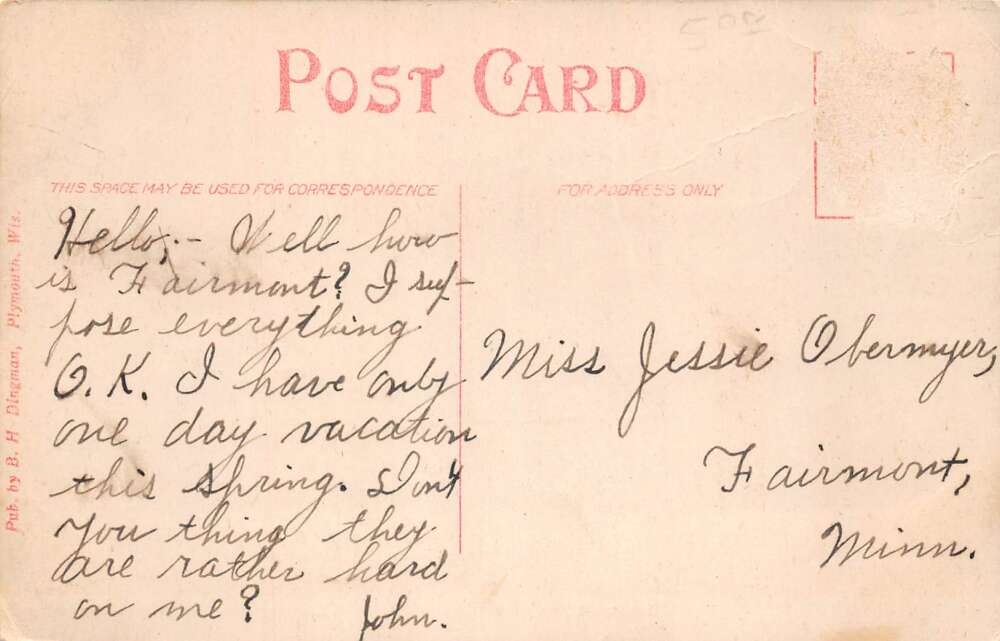 5.00
POST CARD
THIS SPACE MAY BE USED FOR CORRESPONDENCE
FOR ADDRESS ONLY
Pub. by B. H Dingman, Plymouth, Wis.
Hello,:- Well how
is Fairmont? I sup-
pose everything
O.K. I have only
one day vacation
this spring. Don't
you thing they
are rather hard
on me? John.
Miss Jessie Obermyer,
Fairmont,
Minn.